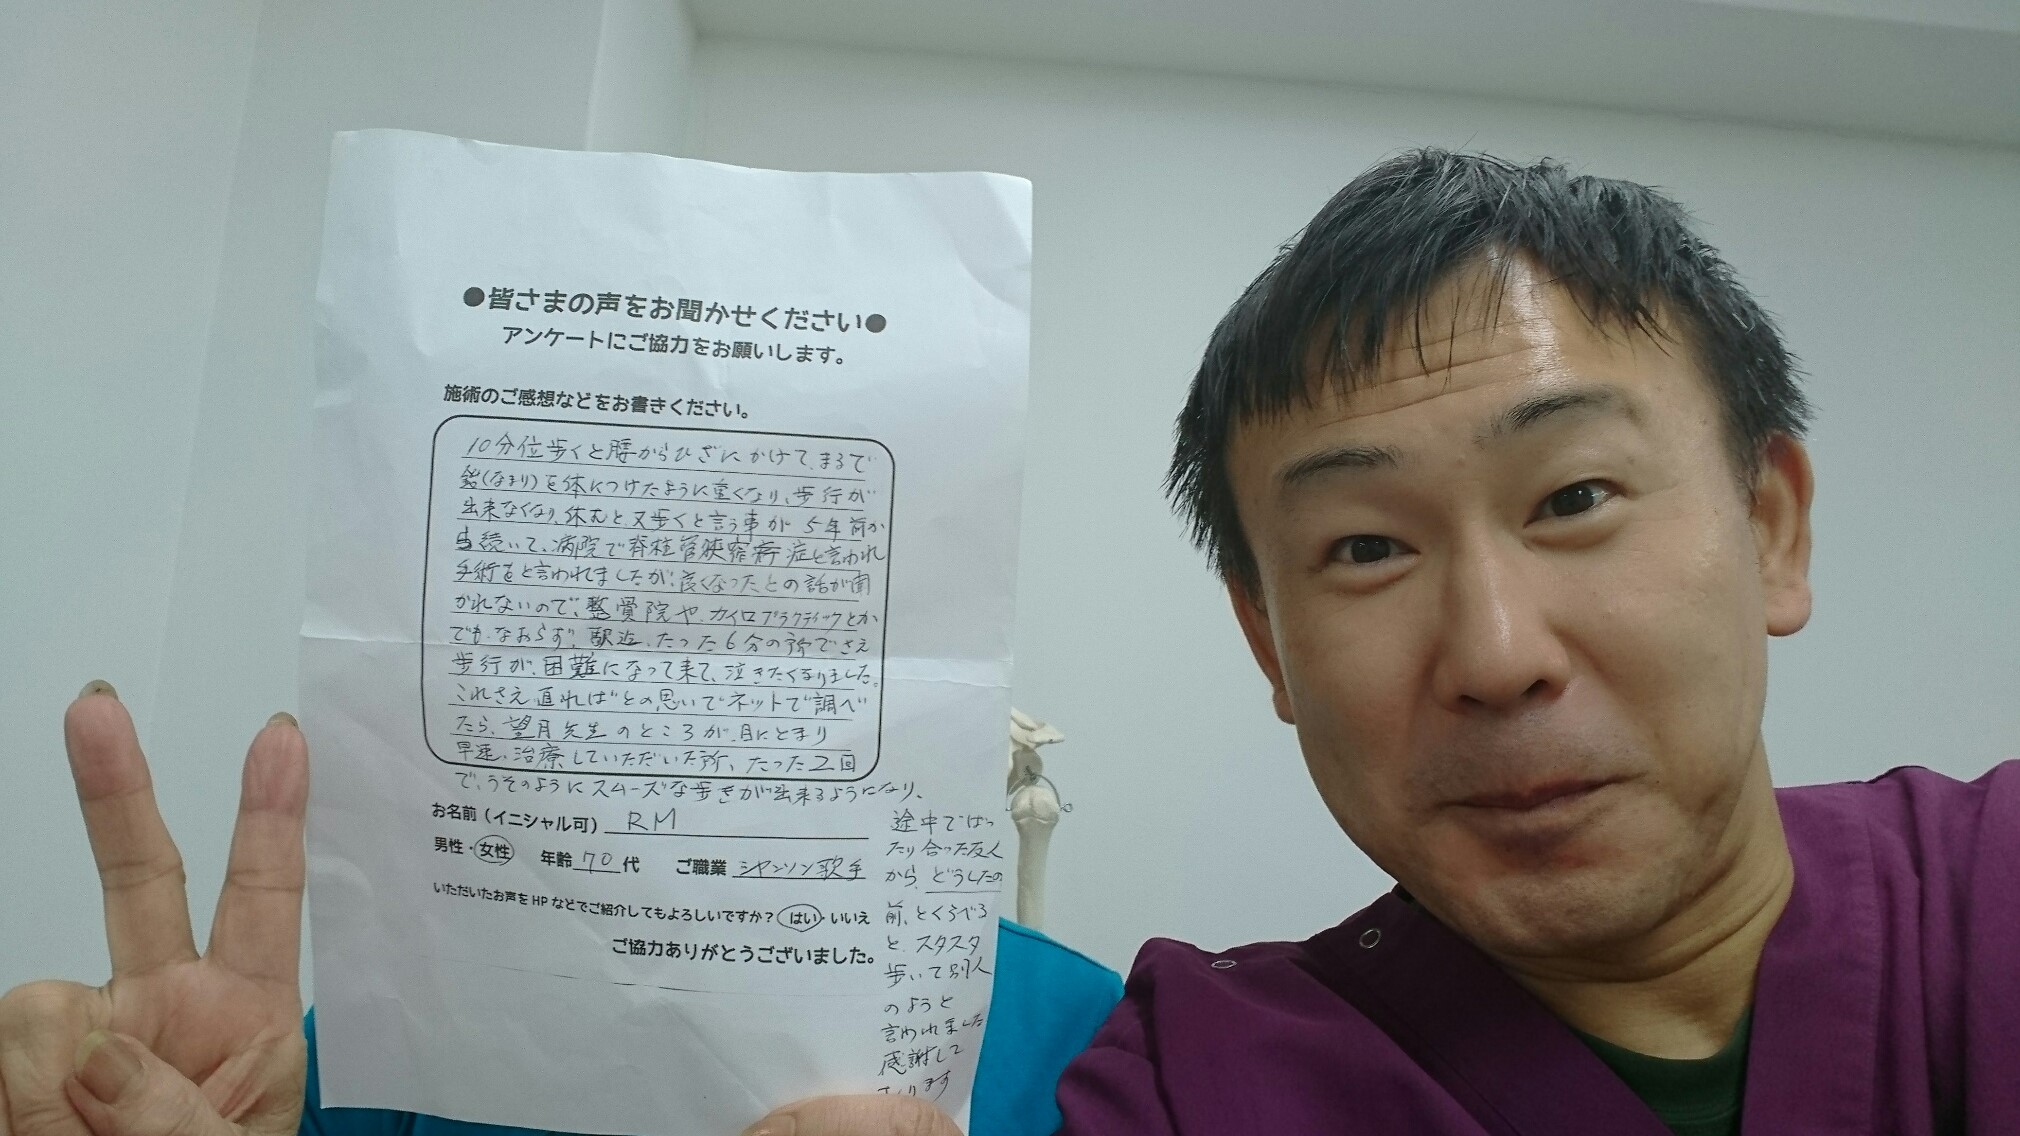 ●皆さまの声をお聞かせください●
アンケートにご協力をお願いします。
施術のご感想などをお書きください。
10分位歩くと腰からひざにかけて、まるで
鉛(なまり)を体につけたように重くなり、歩行が
出来なくなり、休むと又歩くと言う事が5年前か
ら続いて、病院で脊柱管狭窄症と言われ
手術をと言われましたが、良くなったとの話が聞
かれないので、整骨院や、カイロプラクティックとか
でも、なおらず、駅近、たった6分の所でさえ
歩行が、困難になって来て、泣きたくなりました。
これさえ直ればとの思いでネットで調べ
たら、望月先生のところが、目にとまり
早速、治療していただいた所、たった2回
で、うそのようにスムーズな歩きが出来るようになり、
お名前（イニシャル可） RM
男性・女性 年齢 70 代 ご職業 シャンソン歌手
いただいたお声をHPなどでご紹介してもよろしいですか？ はい・いいえ
ご協力ありがとうございました。
途中でばっ
たり合った友人
から、どうしたの
前、とくらべる
と、スタスタ
歩いて別人
のようと
言われました
感謝して
おります